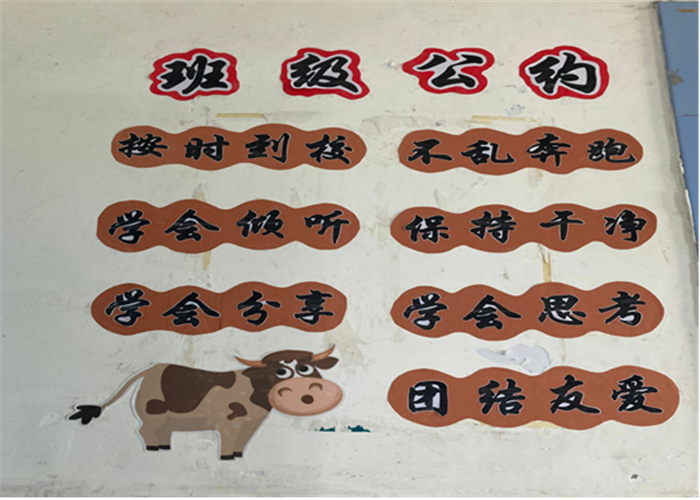 班级公约
按时到校
不乱奔跑
学会倾听
保持干净
学会分享
学会思考
团结友爱